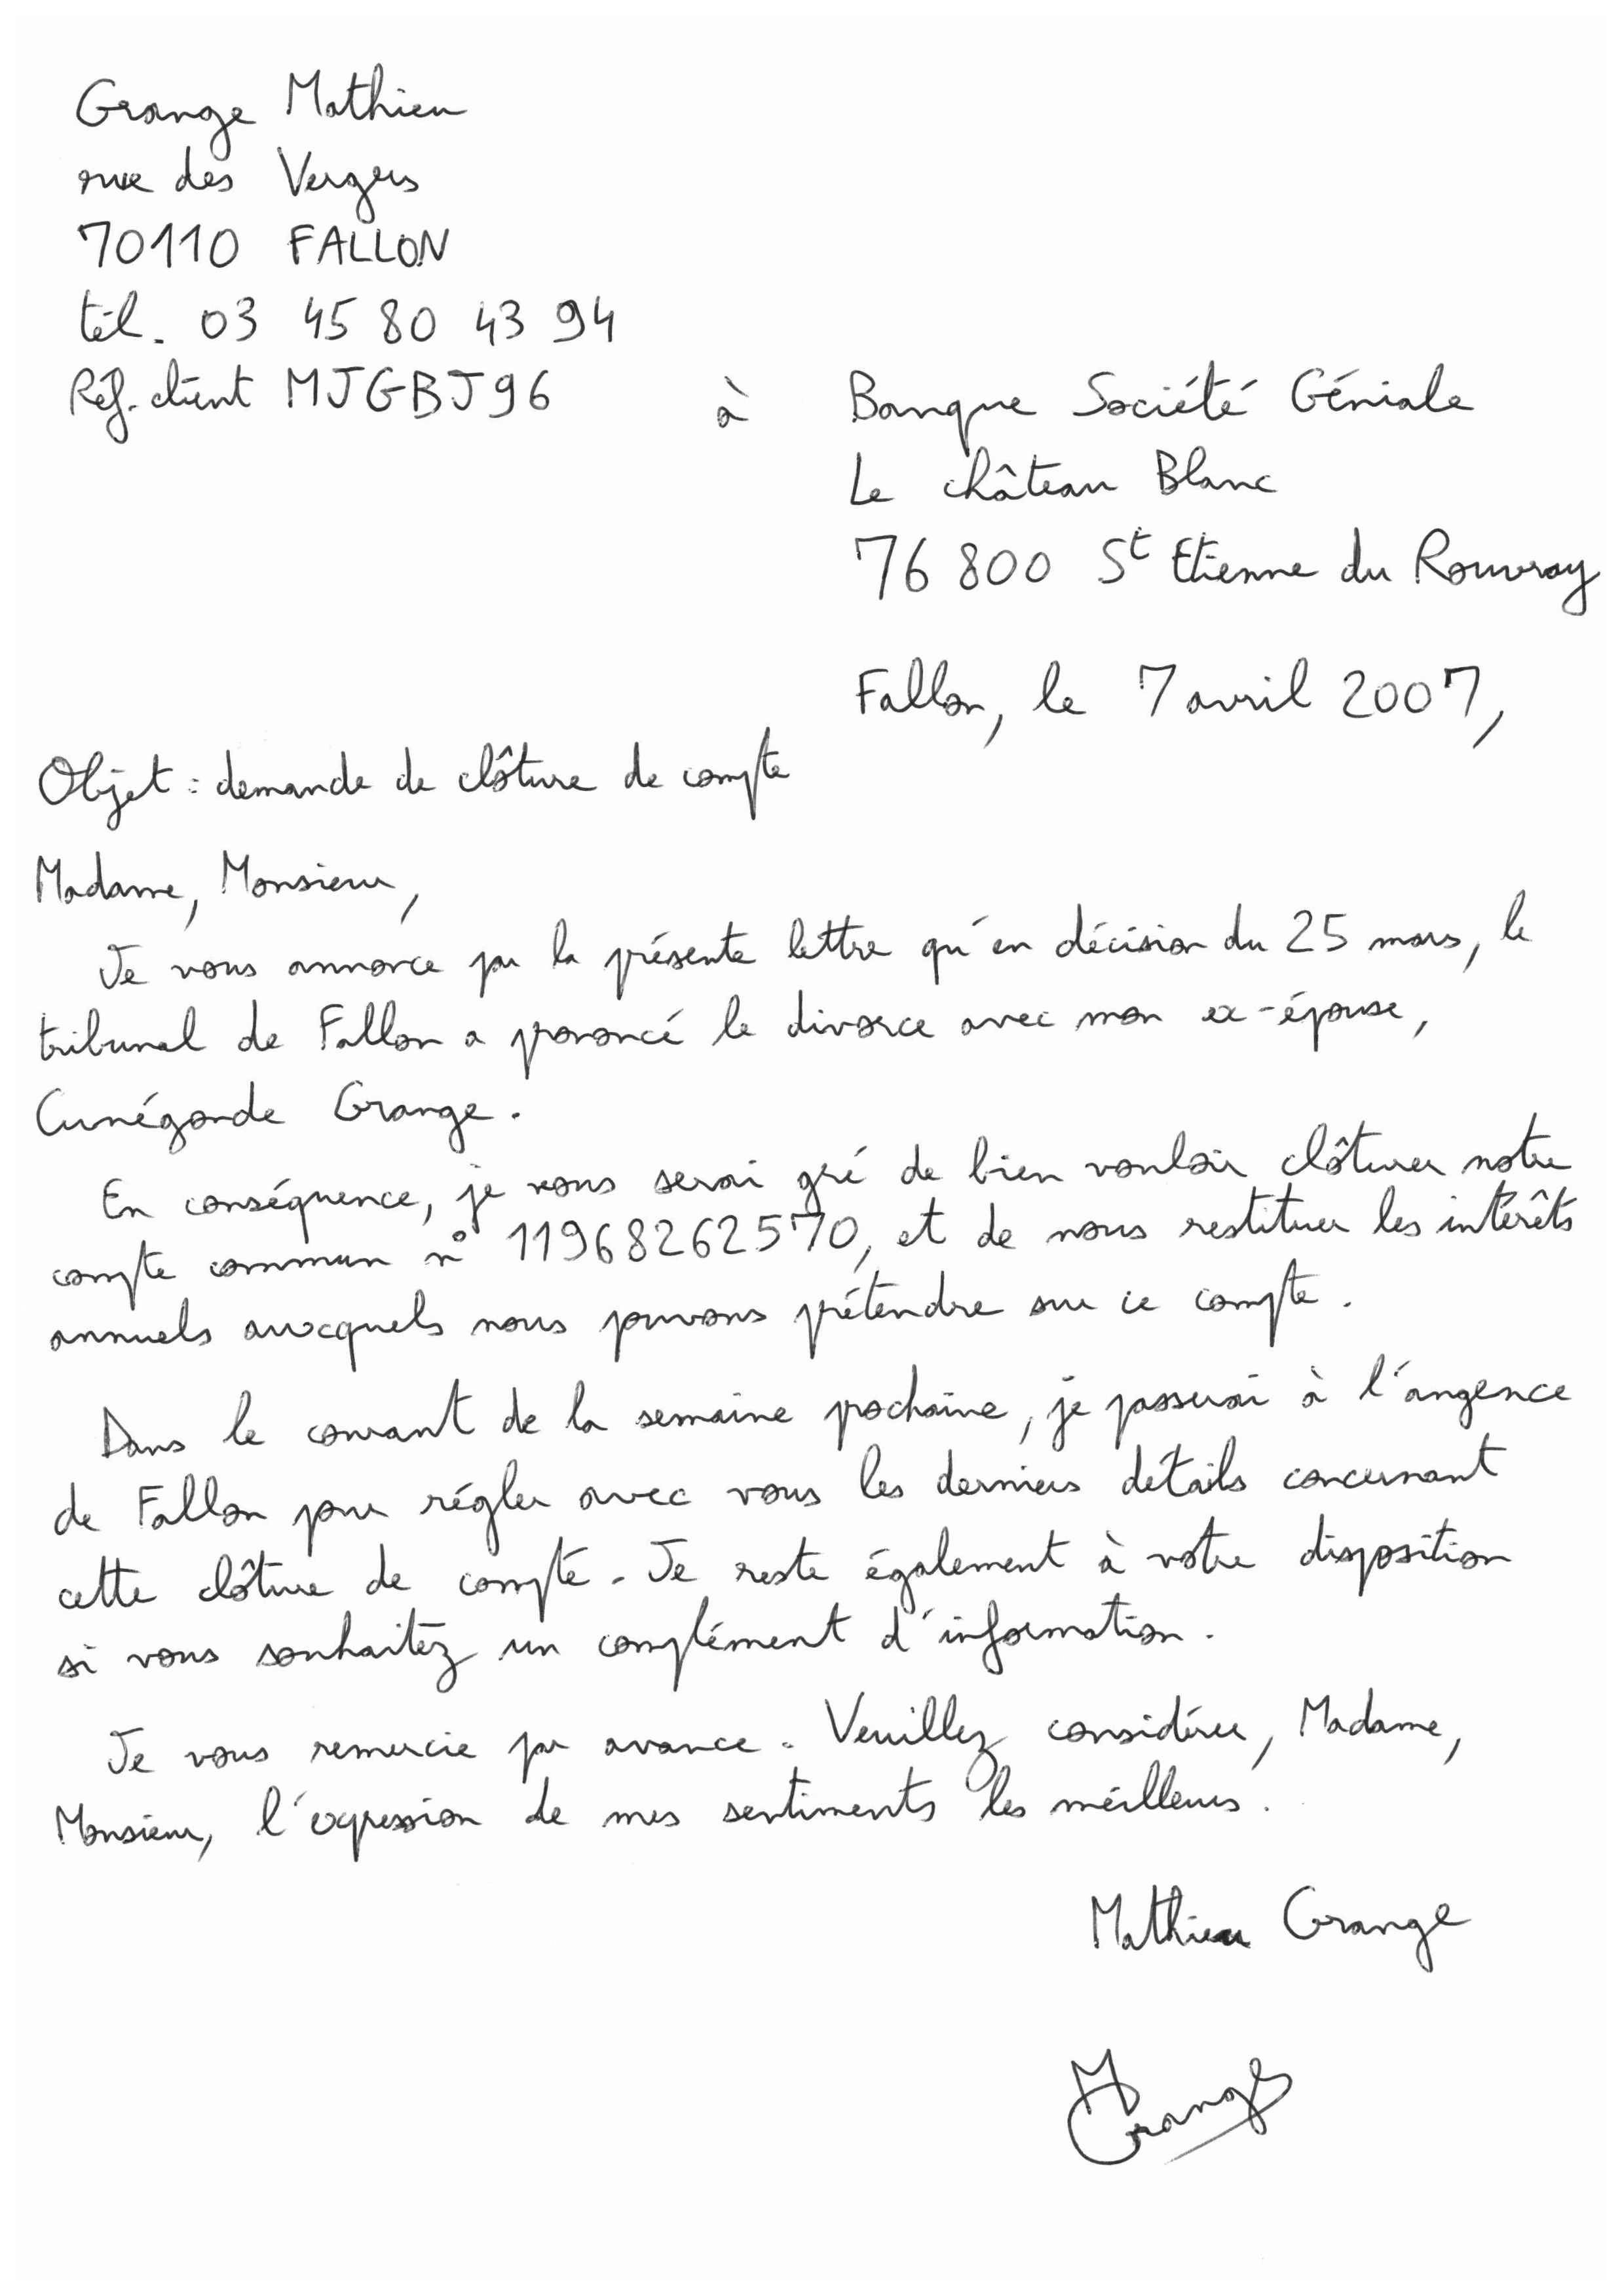 Grange Mathieu
rue des Vergers
70110 FALLON
tél. 03 45 80 43 94
Réf. client MJGBJ96
à Banque Société Géniale
Le château Blanc
76 800 St Etienne du Rouvray
Fallon, le 7 avril 2007,
Objet : demande de clôture de compte
Madame, Monsieur,
Je vous annonce par la présente lettre qu'en décision du 25 mars, le
tribunal de Fallon a prononcé le divorce avec mon ex-épouse,
Cunégonde Grange.
En conséquence, je vous serai gré de bien vouloir clôturer notre
compte commun n° 11968262570, et de nous restituer les intérêts
annuels auxquels nous pouvons prétendre sur ce compte.
Dans le courant de la semaine prochaine, je passerai à l'angence
de Fallon pour régler avec vous les derniers détails concernant
cette clôture de compte. Je reste également à votre disposition
si vous souhaitez un complément d'information.
Je vous remercie par avance. Veuillez considérer, Madame,
Monsieur, l'expression de mes sentiments les meilleurs.
Mathieu Grange
MGrange